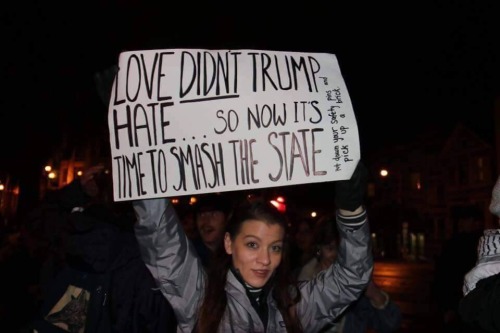 LOVE DIDN'T TRUMP
HATE.... SO NOW IT'S
TIME TO SMASH THE STATE
Put down your safety pins and
pick up a brick.